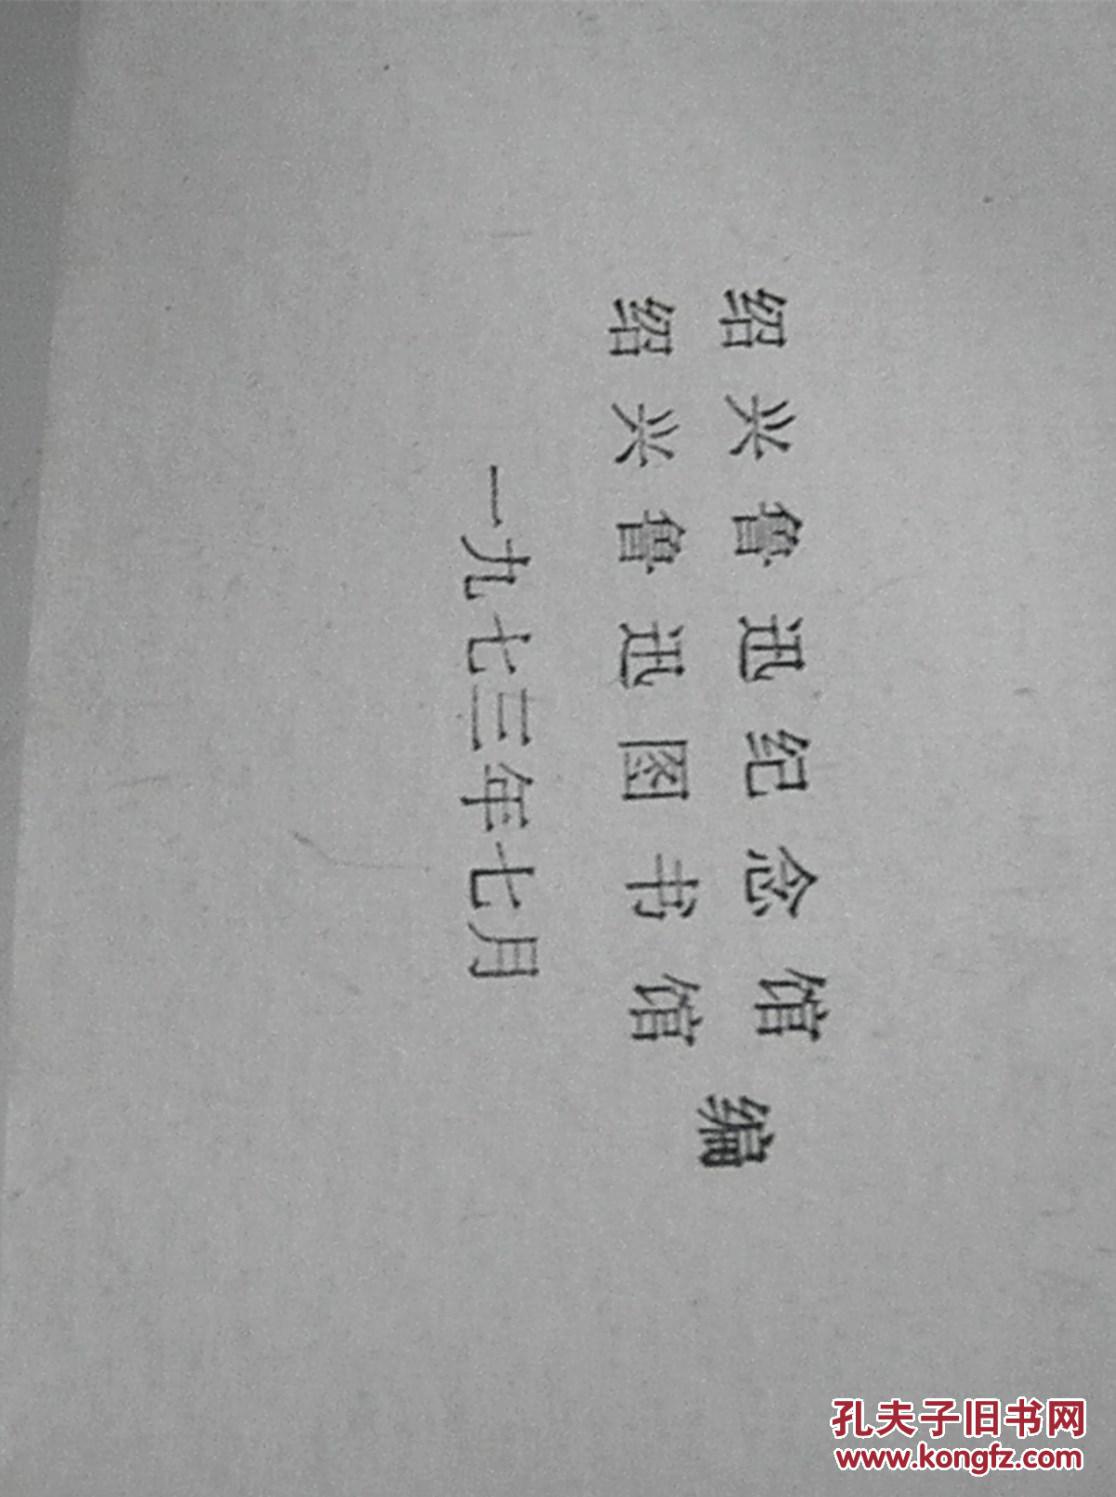 绍兴鲁迅纪念馆
绍兴鲁迅图书馆
编
一九七三年七月
孔夫子旧书网
www.kongfz.com